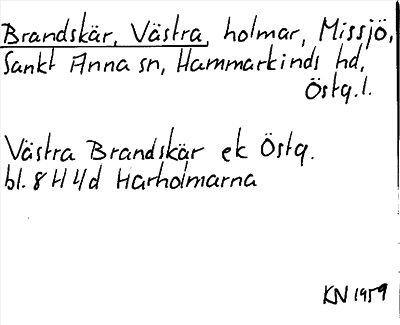 Brandskär, Västra, holmar, Missjö,
Sankt Anna sn, Hammarkinds hd,
Östg.l.
Västra Brandskär ek Östg.
bl. 8 H 4d Harholmarna
KN 1959